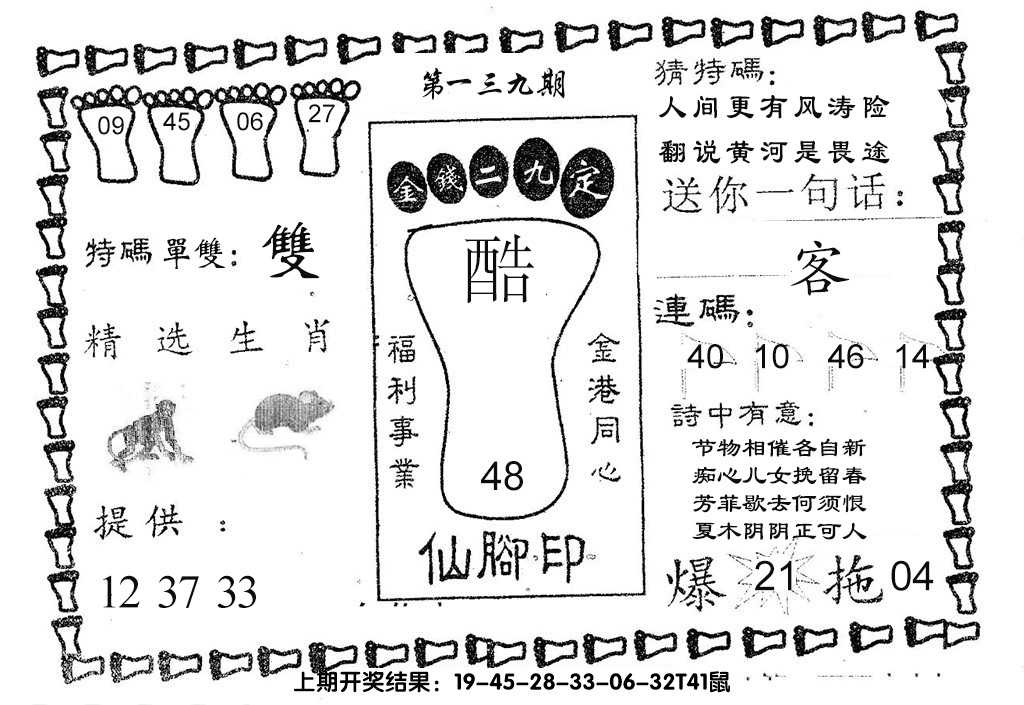 第一三九期
09 45 06 27
特碼單雙：雙
精选生肖
提供：
12 37 33
金錢二九定
酷
福利事業
金港同心
48
仙腳印
猜特碼：
人间更有风涛险
翻说黄河是畏途
送你一句话：
客
連碼：
40 10 46 14
詩中有意：
节物相催各自新
痴心儿女挽留春
芳菲歇去何须恨
夏木阴阴正可人
爆 21 拖 04
上期开奖结果：19-45-28-33-06-32T41鼠